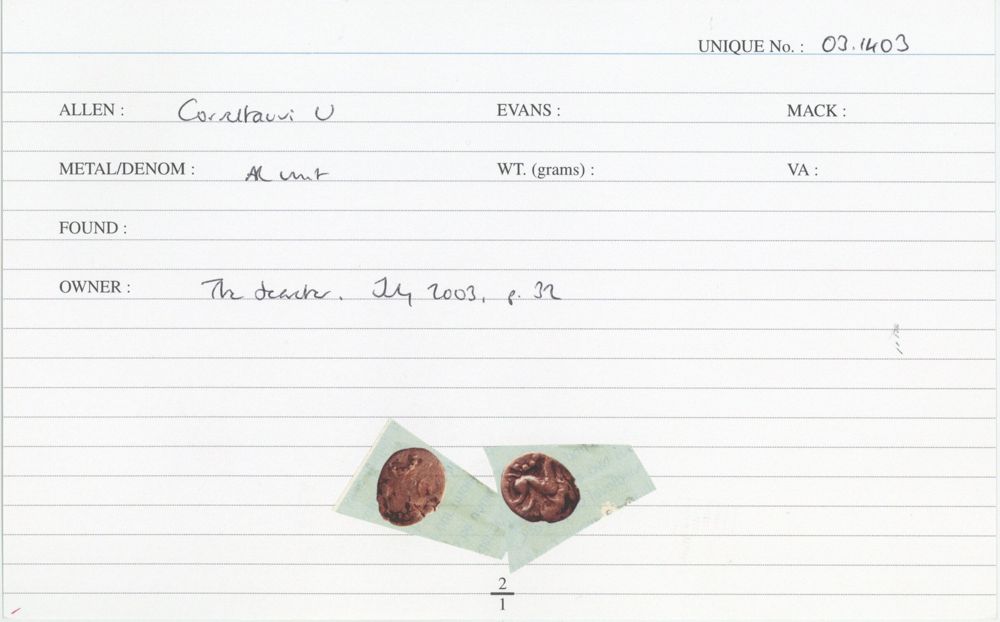 UNIQUE No. : 03.1403
ALLEN : Corieltauvi U EVANS : MACK :
METAL/DENOM : AR unit WT. (grams) : VA :
FOUND :
OWNER : The Searcher. July 2003, p. 32
2
1